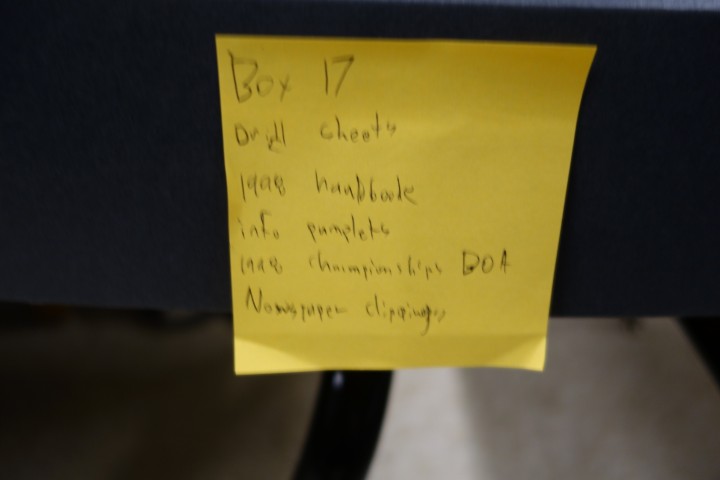 Box 17
Drill cheets
1998 handbook
info pamplets
1998 championships BOA
Newspaper clippings